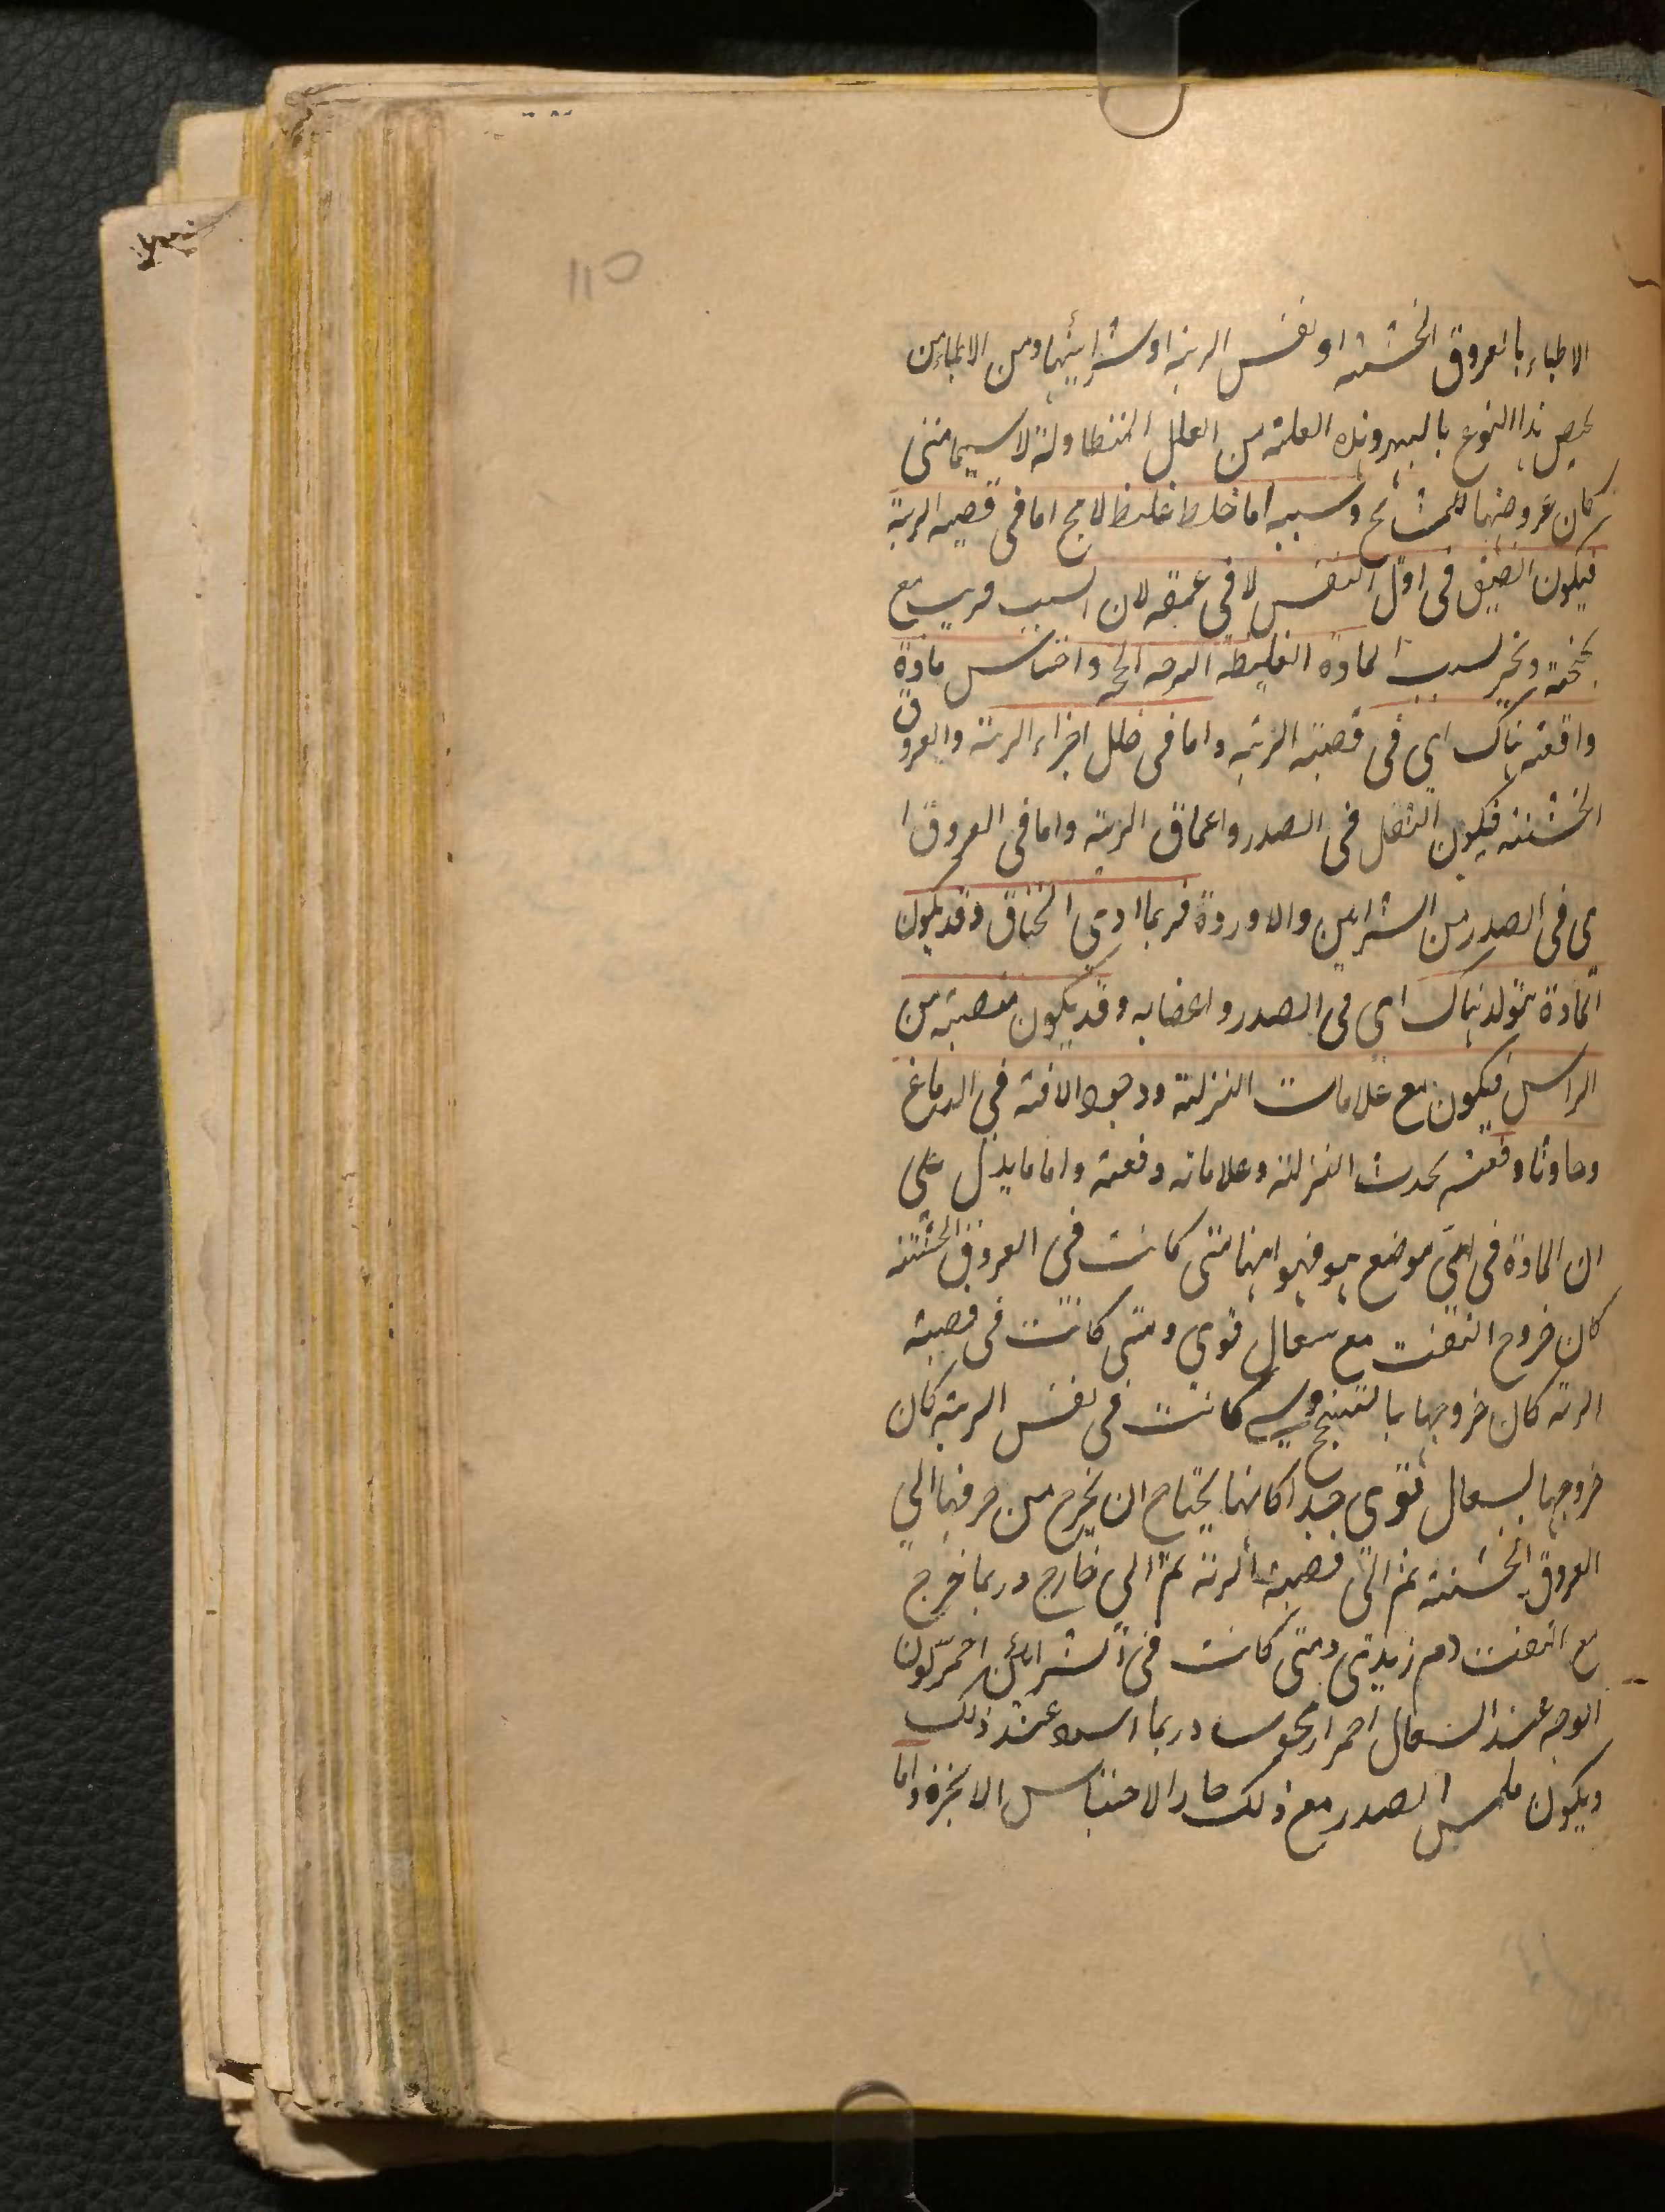 110
الاطباء بالعروق الخشنة او نفس الرية او شرايينها ومن الاطباء من
يخص هذا النوع بالبهر وهذه العلة من العلل المتطاولة لا سيما متى
كان عروضها للمشائخ وسببه اما خلط غليظ لاحج اما فى قصبة الرية
فيكون الضيق فى اول النفس لا فى عمقه لان السبب قريب مع
نحنحة ونخر لسبب المادة الغليظة اللزجة اللحجة واحتباس مادة
واقعة هناك اى فى قصبة الرية واما فى خلل اجزاء الرية والعروق
الخشنة فيكون الثقل فى الصدر واعماق الرية واما فى العروق ا
ى فى الصدر من الشرايين والاوردة فربما ادى الخناق وقد يكون
المادة تتولد هناك اى فى الصدر واعضايه وقد يكون منصبة من
الراس فيكون مع علامات النزلة ووجود الافة فى الدماغ
وحادثا دفعة بحدث النزلة وعلاماته دفعة واما ما يدل على
ان المادة فى اى موضع هو فهو انها متى كانت فى العروق الخشنة
كان خروج النفث مع سعال قوى ومتى كانت فى قصبة
الرية كان خروجها بالتنحنح ومتى كانت فى نفس الرية كان
خروجها بسعال قوى جدا كانها يحتاج ان يخرج من جرمها الى
العروق الخشنة ثم الى قصبة الرية ثم الى خارج وربما خرج
مع النفث دم زبدى ومتى كانت فى الشرائين احمر لون
الوجه عند السعال احمرار محوسا وربما اسود عند ذلك
ويكون ملمس الصدر مع ذلك حارا لاحتباس الابخرة واما